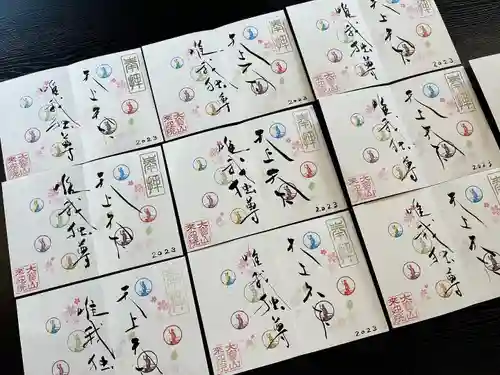 奉拝
天上天下
唯我独尊
2023
奉拝
天上天下
唯我独尊
2023
唯我独尊
2023
奉拝
天上天下
唯我独尊
2023
奉拝
天上天下
唯我独尊
2023
奉拝
天上天下
唯我独尊
2023
奉拝
天上天下
唯我独
奉拝
天上天下
唯我独尊
2023
奉拝
天上天下
唯我独尊